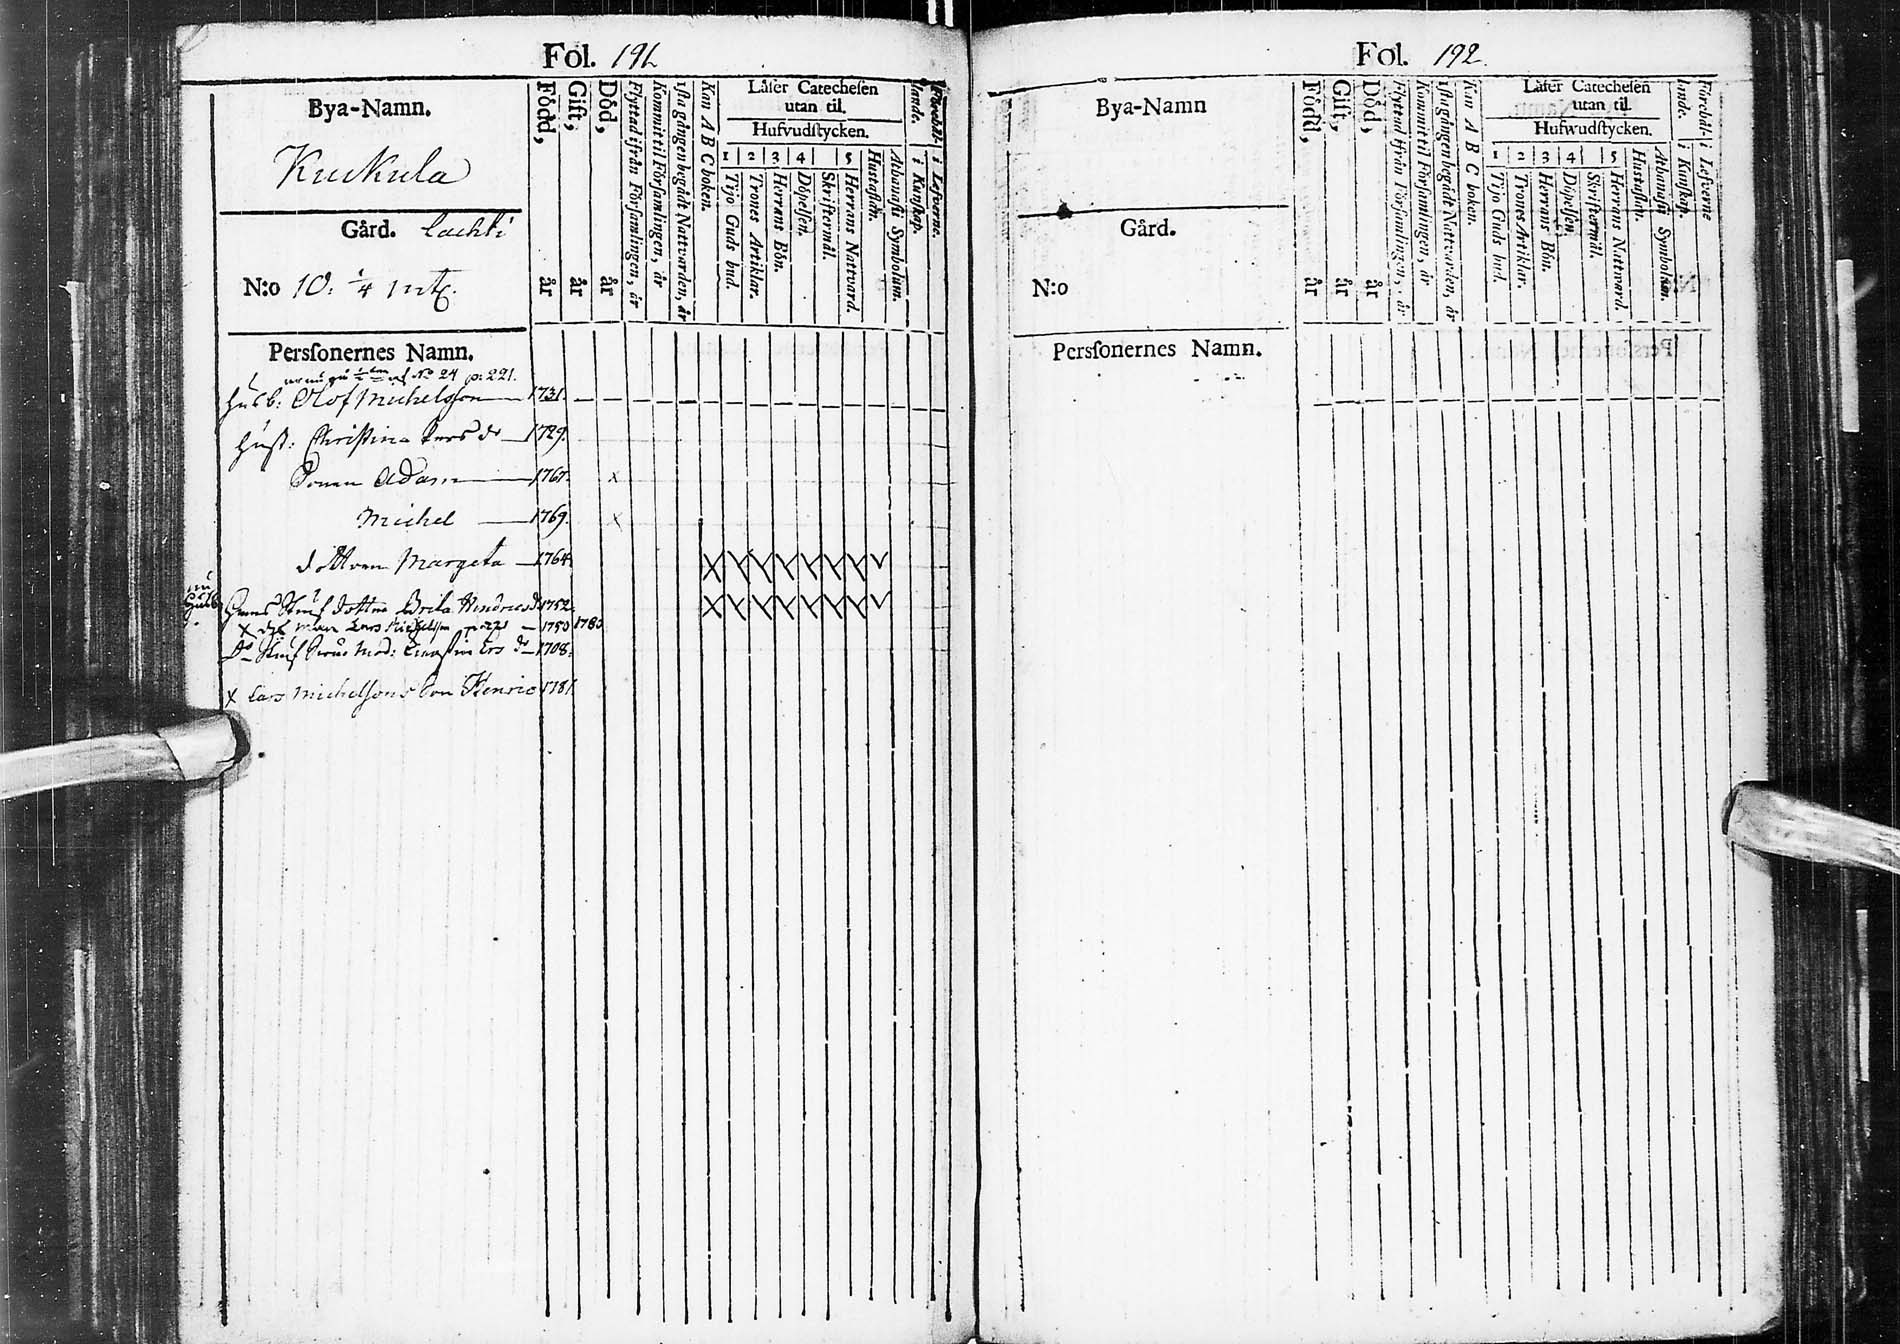 Fol. 191
Bya-Namn.
Kuckula
Gård. Lachti
N:o 10. 1/4 mtl.
Född, år
Gift, år
Död, år
Flyttad ifrån Församlingen, år
Kommit til Församlingen, år
1sta gången begådt Nattvarden, år
Kan A B C boken.
Låser Catechesen
utan til.
Hufvudstycken.
1 2 3 4 5
Tijo Guds bud.
Trones Artiklar.
Herrans Bön.
Döpelsen.
Skriftermål.
Herrans Nattvard.
Hustaflan.
Athanasii Symbolum.
i Kunskap.
i Lefverne.
Perssonernes Namn.
af No 24 p. 221.
Husb: Olof Michelsson 1731.
Hust: Christina Pers dr 1729.
Sonen Adam 1767. x
Michel 1769. x
dottren Margeta 1764.
Brita Hindricsdr 1752.
x Man Lars Michelsson 1750 178
1708.
x Lars Michelsons Son Henric 1781.
Fol. 192.
Bya-Namn
Gård.
N:o
Född, år
Gift, år
Död, år
Flyttad ifrån Församlingen, år
Kommit til Församlingen, år
1sta gången begådt Nattvarden, år
Kan A B C boken.
Låser Catechesen
utan til.
Hufwudstycken.
1 2 3 4 5
Tijo Guds bud.
Trones Artiklar.
Herrans Bön.
Döpelsen.
Skriftermål.
Herrans Nattward.
Hustaflan.
Athanasii Symbolum.
i Kunskap.
i Lefverne
Perssonernes Namn.